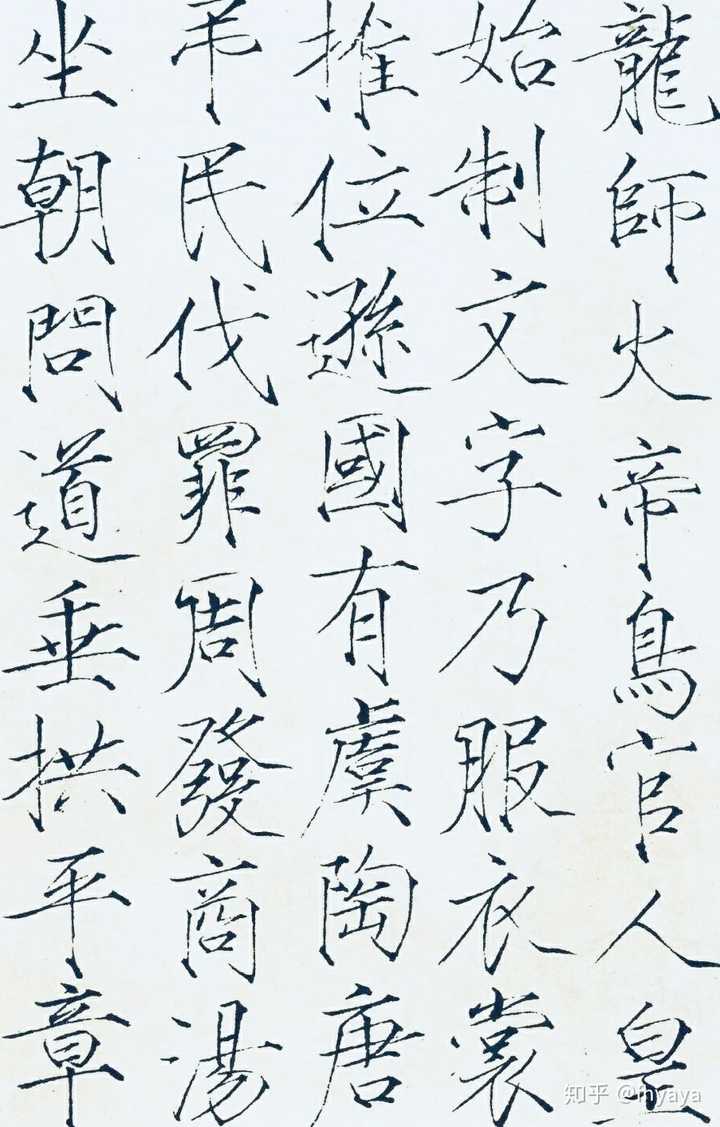 龍師火帝鳥官人皇
始制文字乃服衣裳
推位遜國有虞陶唐
弔民伐罪周發商湯
坐朝問道垂拱平章
知乎 @myaya